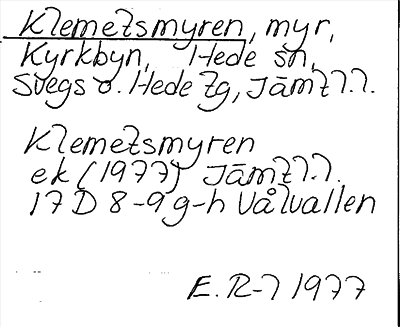 Klemetsmyren, myr,
Kyrkbyn, Hede sn,
Svegs o. Hede tg, Jämtl. l.
Klemetsmyren
ek (1977) Jämtl. l.
17 D 8-9 g-h Vålvallen
E. R-l 1977